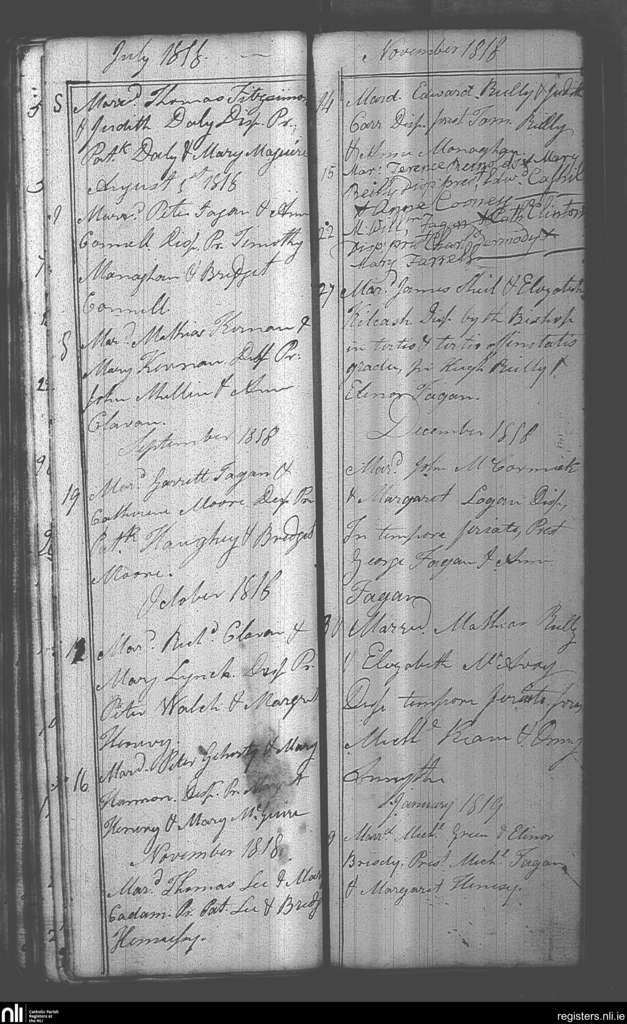 July 1818.
5 8 Marrd. Thomas Fitzsimon
& Judith Daly Disp. Pr.
Patk. Daly & Mary Maguire
August 1st 1818
9 Marrd. Peter Fagan & Ann
Connell Disp. Pr. Timothy
Monaghan & Bridget
Connell
8 Mard. Mathias Kernan &
Mary Kernan Disp Pr.
John Mullin & Ann
Clavan.
September 1818
19 Mard. Garrett Fagan &
Catherine Moore Disp Pr
Patk. Haughey & Bridget
Moore.
October 1818
12 Mard. Richd. Clavan &
Mary Lynch. Disp Pr.
Peter Walch & Margt
16 Mard. Peter & Mary
Harmon. Disp. Pr.
& Mary McGuire
November 1818
Mard. Thomas Lee & Mary
Cadam. Pr. Pat. Lee & Bridg
Hennesy.
November 1818
14 Mard. Edward Reilly & Judith
Carr Disp. Prest Jam. Reilly
& Anne Monaghan
15 Mar. Terence Reynolds & Mary
Reilly Disp prest Edwd.
& Anne Cooney
22 Willm. Fagan & Cath. Clinton
Disp prst Char. Dermody &
Mary Farrell
27 Mard. James Sheil & Elizabeth
Kilcash Disp by the Bishop
in tertio & tertio affinitatis
gradu, pr. Hugh Reilly &
Elinor Fagan.
December 1818
Mard. John McCormick
& Margaret Logan Disp,
In tempore feriato, Prest
George Fagan & Ann
Fagan
30 Married. Mathias Reilly
& Elizabeth McAvoy
Disp tempore feriato,
Michl. Keam &
Smyth
January 1819
9 Mard. Michl. Green & Elinor
Briody. Prest Michl. Fagan
& Margaret Hennesy.
nli
Catholic Parish
Registers at
the NLI
registers.nli.ie